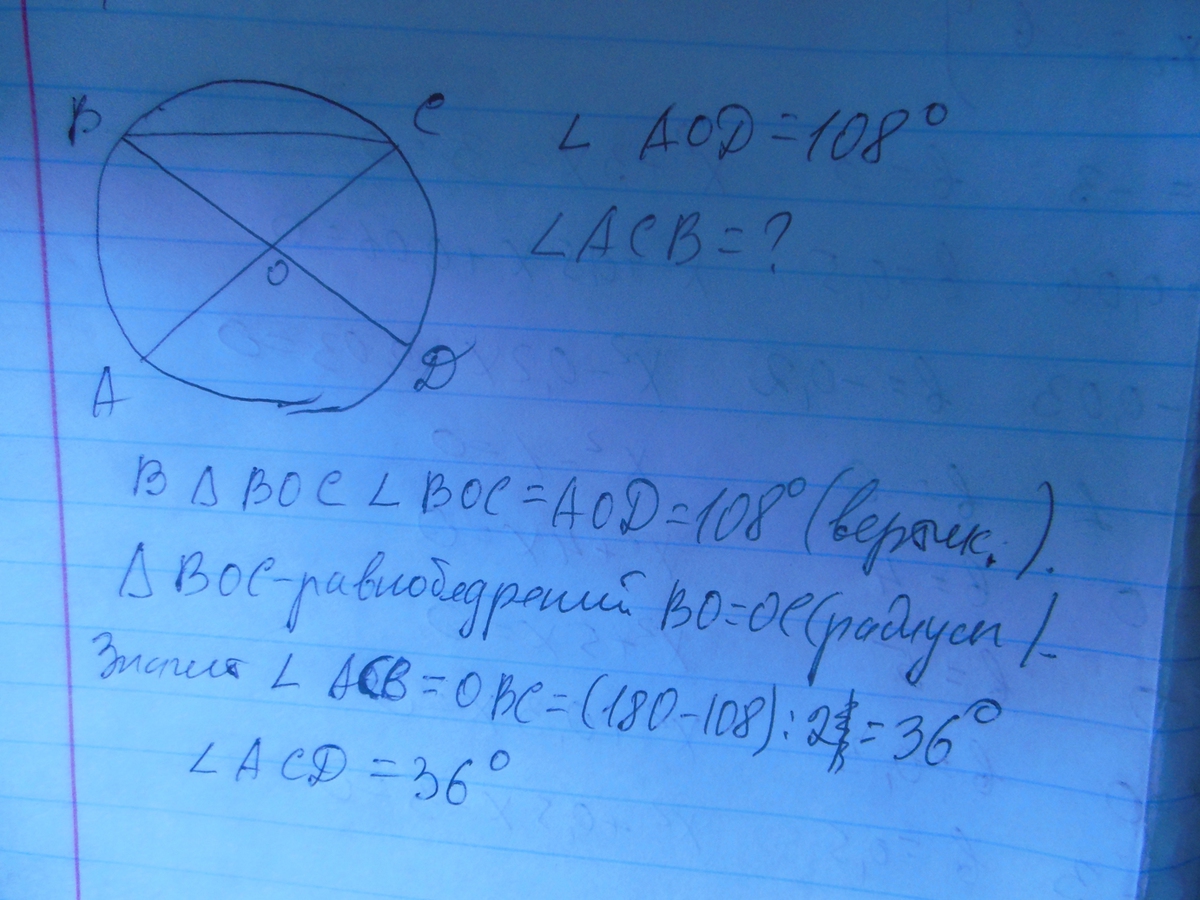 B
C
∠ AOD = 108°
∠ACB = ?
O
A
D
В Δ BOC ∠ BOC = AOD = 108° (вертик.).
Δ BOC - равнобедрений BO = OC (радиусы).
∠ ACB = OBC = (180 - 108) : 2 = 36°
∠ ACD = 36°